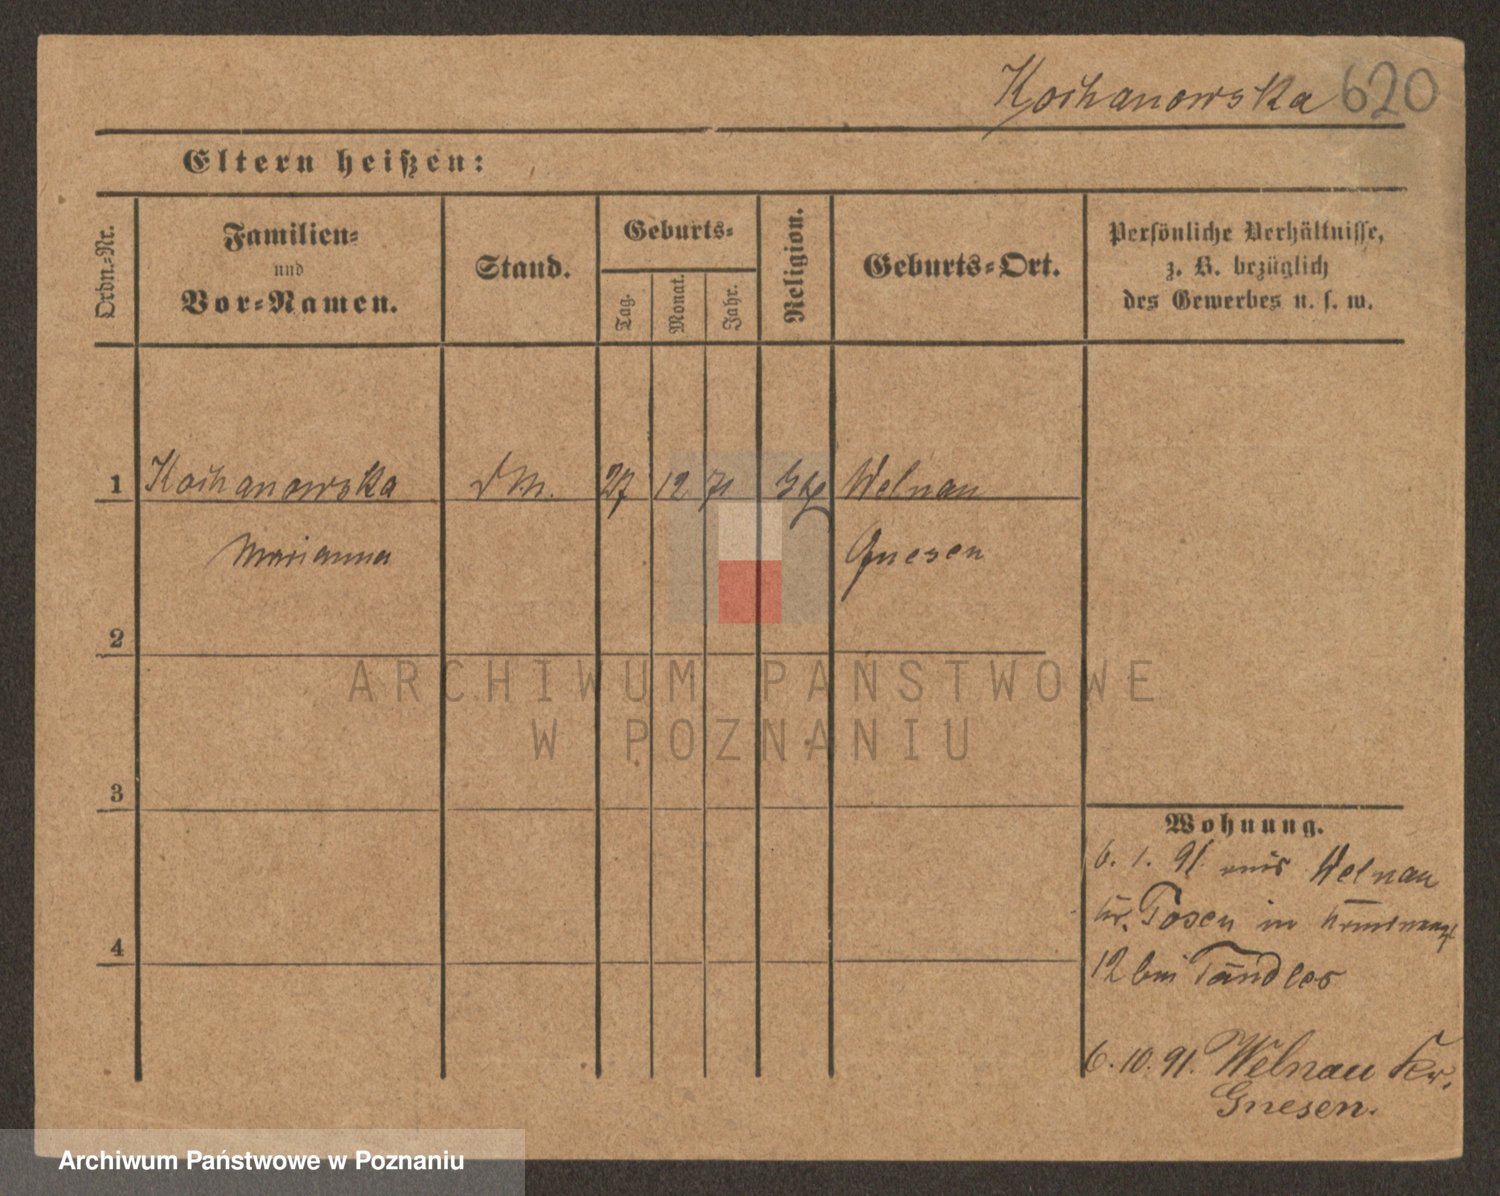 Kochanowska 620
Eltern heißen:
Ordn.-Nr.
Familien-
und
Vor-Namen.
Stand.
Geburts-
Tag.
Monat.
Jahr.
Religion.
Geburts-Ort.
Persönliche Verhältnisse,
z. B. bezüglich
des Gewerbes u. s. w.
1 Kochanowska DM. 27 12 71 Welnau
Marianna Gnesen
2
3
4
ARCHIWUM PAŃSTWOWE
W POZNANIU
Wohnung.
6. 1. 91. aus Welnau
Kr. Posen in
12 bei Tändler
6. 10. 91. Welnau Kr.
Gnesen.
Archiwum Państwowe w Poznaniu